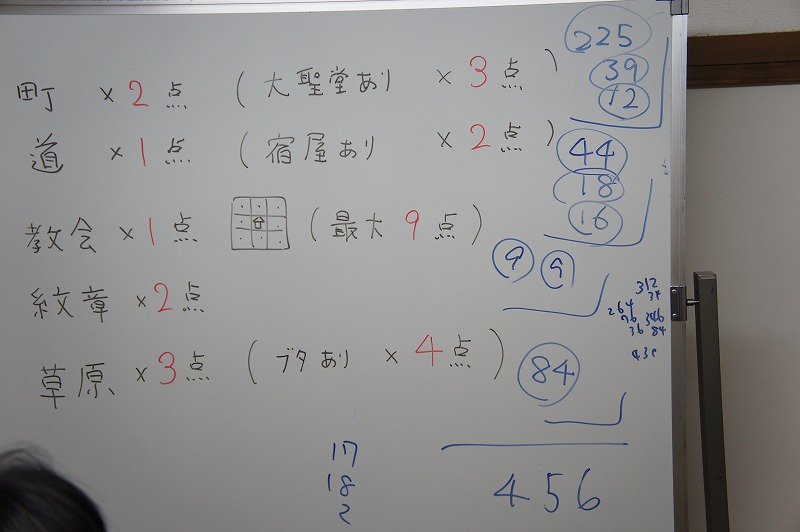 町 × 2 点 (大聖堂あり × 3 点)
225
39
12
道 × 1 点 (宿屋あり × 2 点)
44
18
16
教会 × 1 点 (最大 9 点)
9 9
紋章 × 2 点
312
264
346
36 84
草原 × 3 点 (ブタあり × 4 点)
84
17
18
2
456